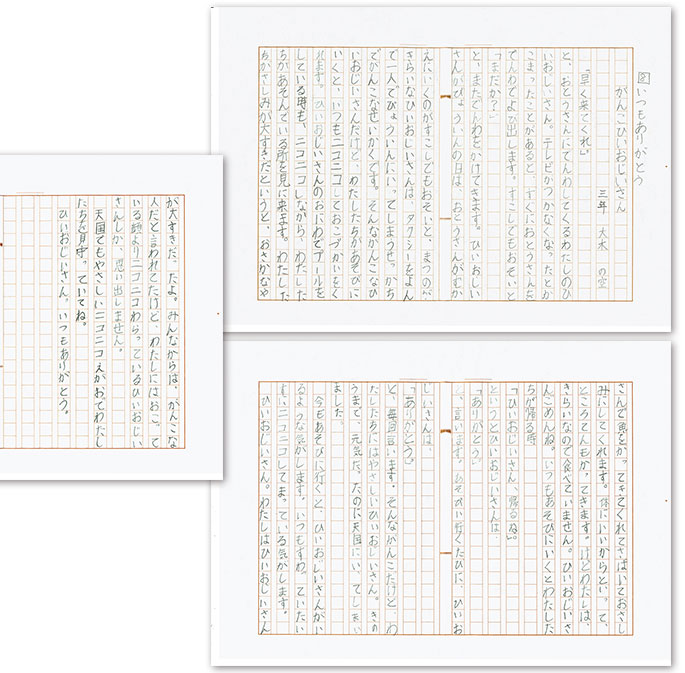 図いつもありがとう
がんこひいおじいさん
三年 大木 の空
「早く来てくれ。」
と、おとうさんにでんわしてくるわたしのひ
いおじいさん。テレビがつかなくなったとか
こまったことがあると、すぐにおとうさんを
でんわでよび出します。すこしでもおそいと
「まだか？」
と、またでんわをかけてきます。ひいおじい
さんがびょういんの日は、おとうさんがむか
えにいくのがすこしでもおそいと、まつのが
きらいなひいおじいさんは、タクシーをよん
で一人でびょういんにいってしまうせっかち
でがんこなせいかくです。そんながんこなひ
いおじいさんだけど、わたしたちがあそびに
いくと、いつもニコニコしておこづかいをく
れます。ひいおじいさんのおにわでプールを
している時も、ニコニコしながら、わたした
ちがあそんでいる所を見に来ます。わたした
ちがさしみが大すきだというと、おさかなや
さんで魚をかってきてくれてさばいておさし
みにしてくれます。体にいいからといって、
ところてんもかってきます。けどわたしは、
きらいなので食べていません。ひいおじいさ
んごめんね。いつもあそびにいくとわたした
ちが帰る時
「ひいおじいさん、帰るね。」
というとひいおじいさんは、
「ありがとう。」
と、言います。あそびに行くたびに、ひいお
じいさんは、
「ありがとう。」
と、毎回言います。そんながんこだけど、わ
たしたちにはやさしいひいおじいさん。きの
うまで、元気だったのに天国にいってしまい
ました。
今もあそびに行くと、ひいおじいさんがい
るような気がします。いつもすわっていたい
すにニコニコしてまっている気がします。
ひいおじいさん。わたしはひいおじいさん
が大すきだったよ。みんなからは、がんこな
人だと言われてたけど、わたしにはおこって
いる顔よりニコニコわらっているひいおじい
さんしか、思い出しません。
天国でもやさしいニコニコえがおでわたし
たちを見守っていてね。
ひいおじいさん。いつもありがとう。